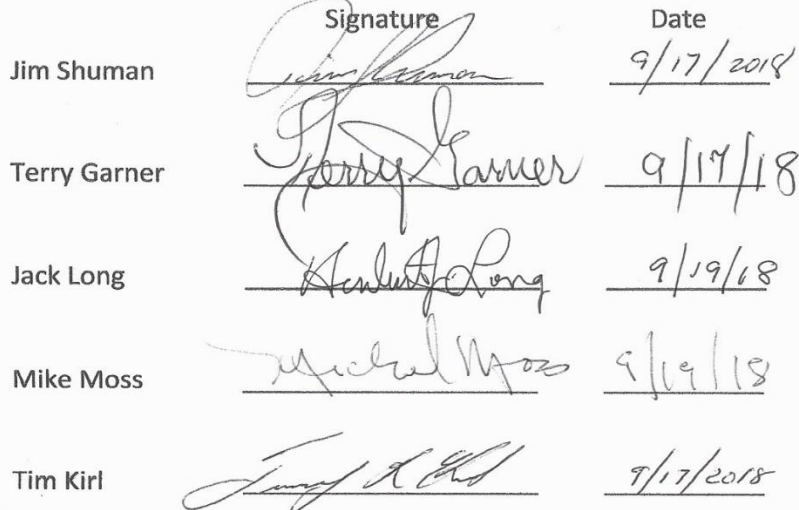 Signature Date
Jim Shuman Jim Shuman 9/17/2018
Terry Garner Terry Garner 9/17/18
Jack Long Herbert J Long 9/19/18
Mike Moss Michael Moss 9/19/18
Tim Kirl 9/17/2018